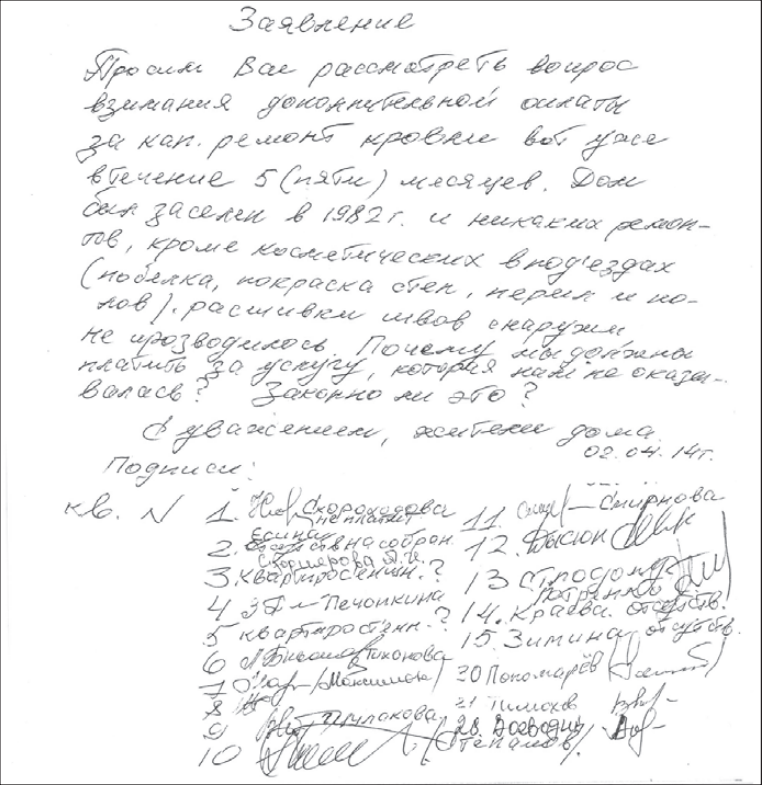 Заявление
Просим Вас рассмотреть вопрос
взимания дополнительной оплаты
за кап. ремонт кровли вот уже
втечение 5 (пяти) месяцев. Дом
был заселен в 1982 г. и никаких ремон-
тов, кроме косметических в подъездах
(побелка, покраска стен, перил и по-
лов). расшивки швов снаружи
не прозводилось. Почему мы должны
платить за услугу, которая нам не оказы-
валась? Законно ли это?
С уважением, жители дома.
02.04.14г.
Подписи:
кв. N 1. Скороходова
не платит
2. отсутств на собран.
3. квартиросъемн. ?
4 Печонкина
5 квартиросъемн. ?
6 Тихонова
7 (Максимов)
8
9
10 /Степанов/
11. Смирнова
12.
13
14. Краева. отсутств.
15. Зимина, отсутств.
20 Пономарёв
21 Тимохов
28. Воеводин